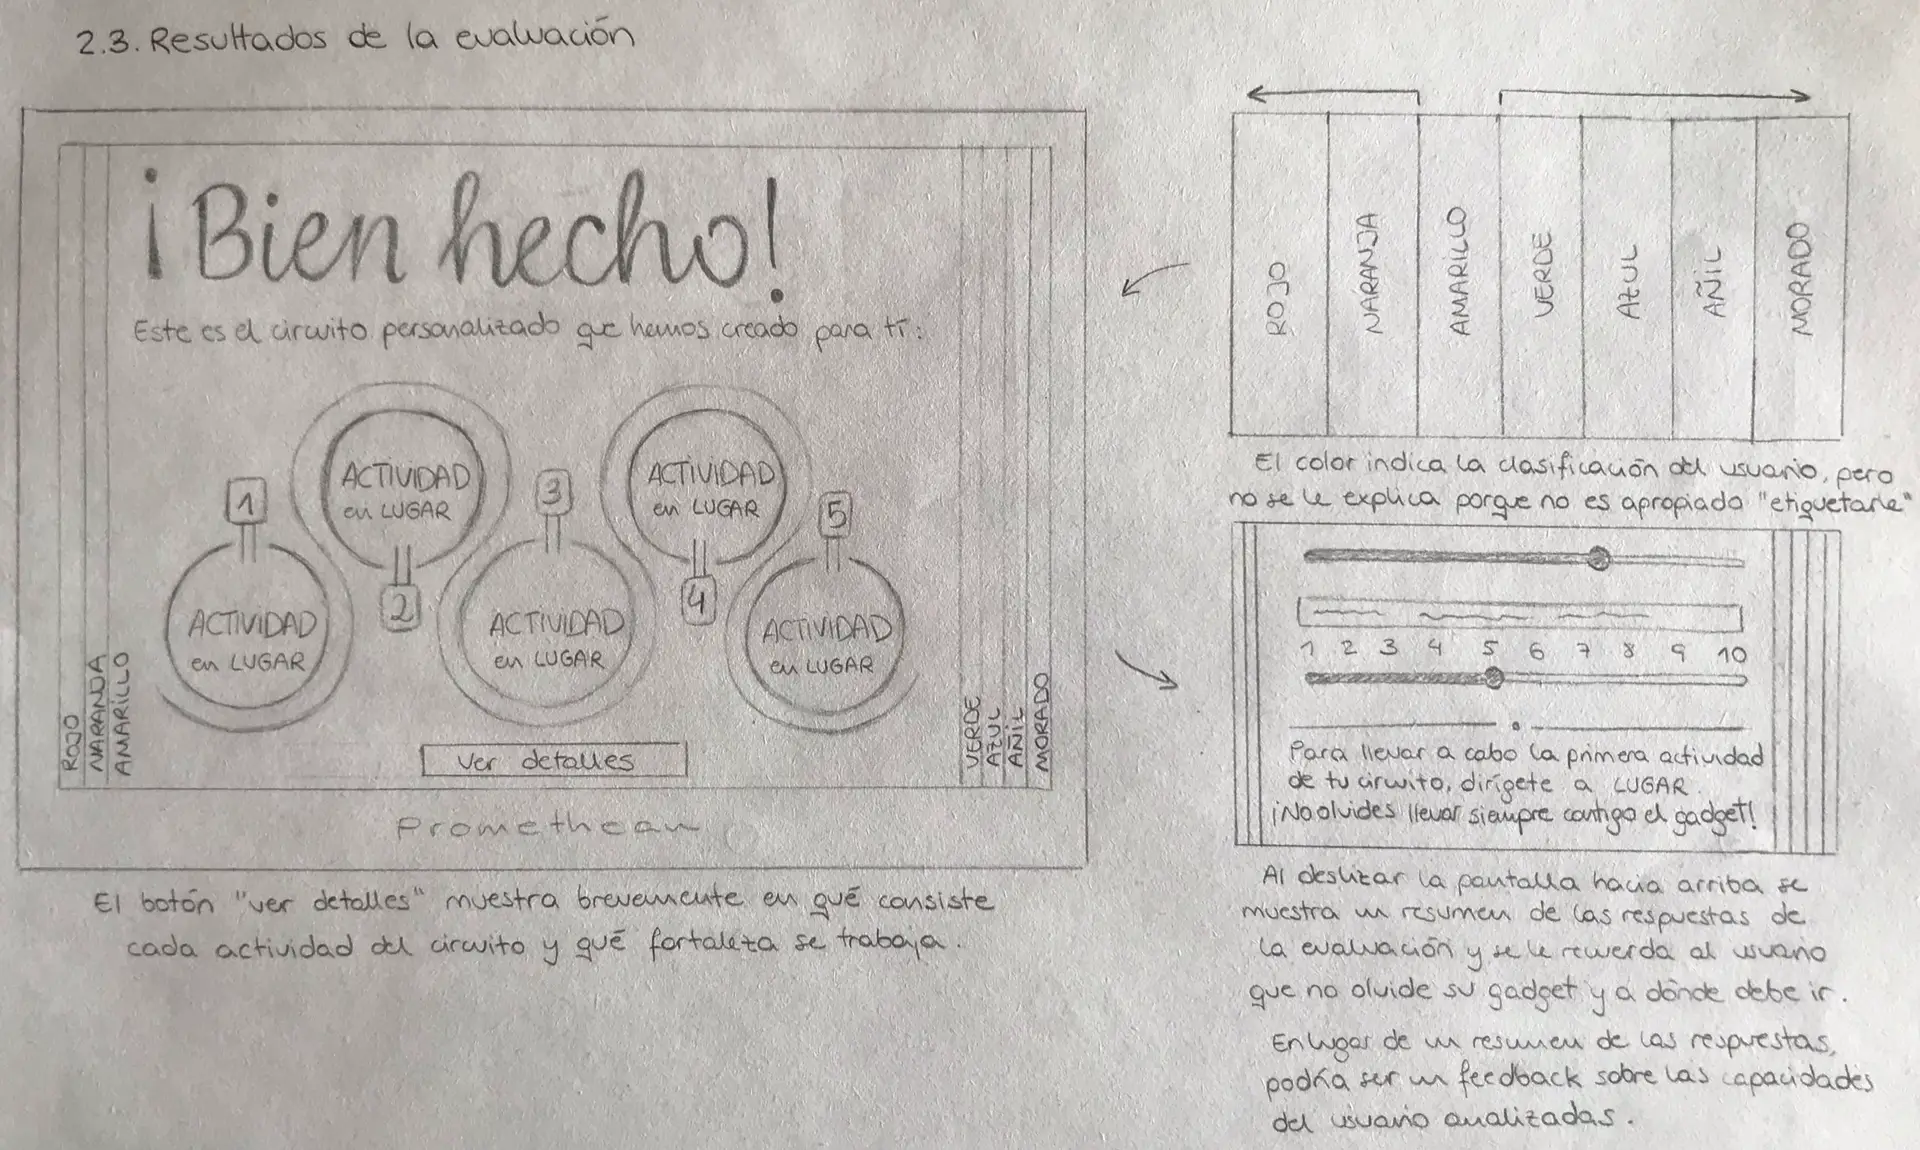 2.3. Resultados de la evaluación
¡Bien hecho!
Este es el circuito personalizado que hemos creado para tí:
1
ACTIVIDAD
en LUGAR
2
ACTIVIDAD
en LUGAR
3
ACTIVIDAD
en LUGAR
4
ACTIVIDAD
en LUGAR
5
ACTIVIDAD
en LUGAR
ROJO
NARANJA
AMARILLO
VERDE
AZUL
AÑIL
MORADO
Ver detalles
Promethean
El botón "ver detalles" muestra brevemente en qué consiste
cada actividad del circuito y qué fortaleza se trabaja.
ROJO
NARANJA
AMARILLO
VERDE
AZUL
AÑIL
MORADO
El color indica la clasificación del usuario, pero
no se le explica porque no es apropiado "etiquetarle"
1 2 3 4 5 6 7 8 9 10
Para llevar a cabo la primera actividad
de tu circuito, dirígete a LUGAR.
¡No olvides llevar siempre contigo el gadget!
Al deslizar la pantalla hacia arriba se
muestra un resumen de las respuestas de
la evaluación y se le recuerda al usuario
que no olvide su gadget y a dónde debe ir.
En lugar de un resumen de las respuestas,
podría ser un feedback sobre las capacidades
del usuario analizadas.